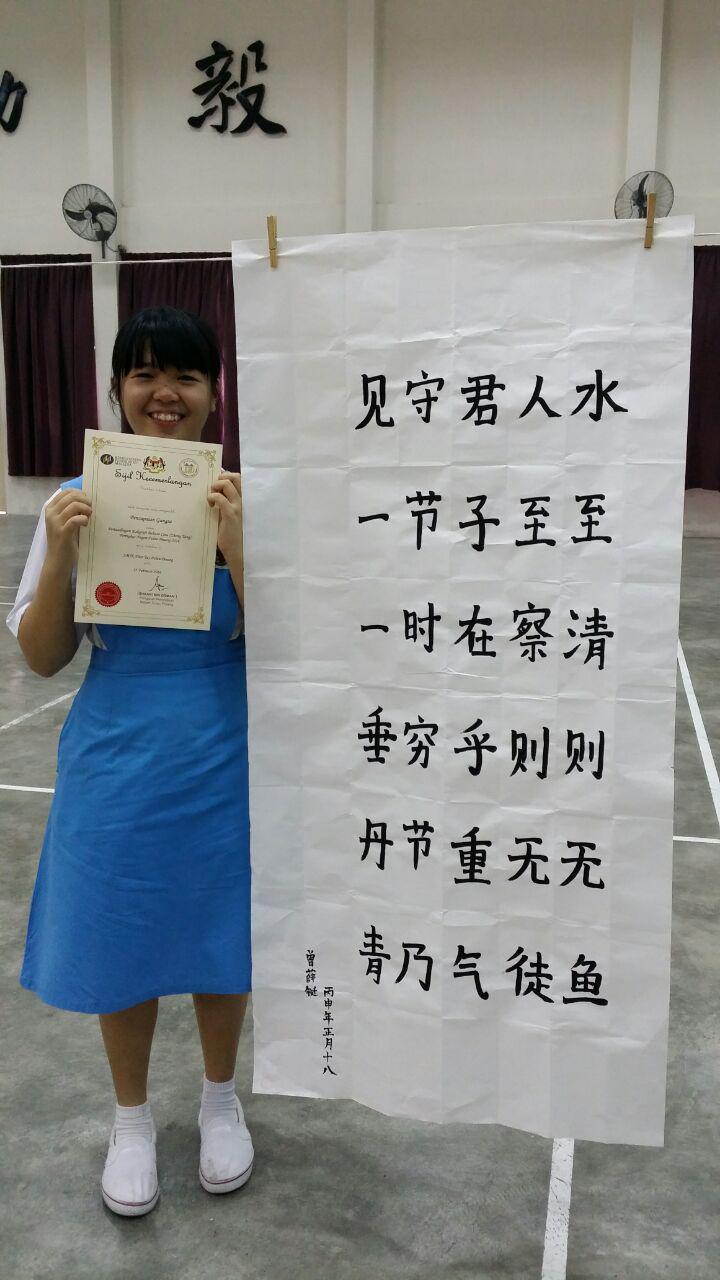 毅
水至清则无鱼
人至察则无徒
君子在乎重气
守节时穷节乃
见一一垂丹青
丙申年正月十八
曾薛
Sijil Kecemerlangan
Pencapaian Gangsa
Pertandingan Kaligrafi Bahasa Cina
Peringkat Negeri Pulau Pinang 2016